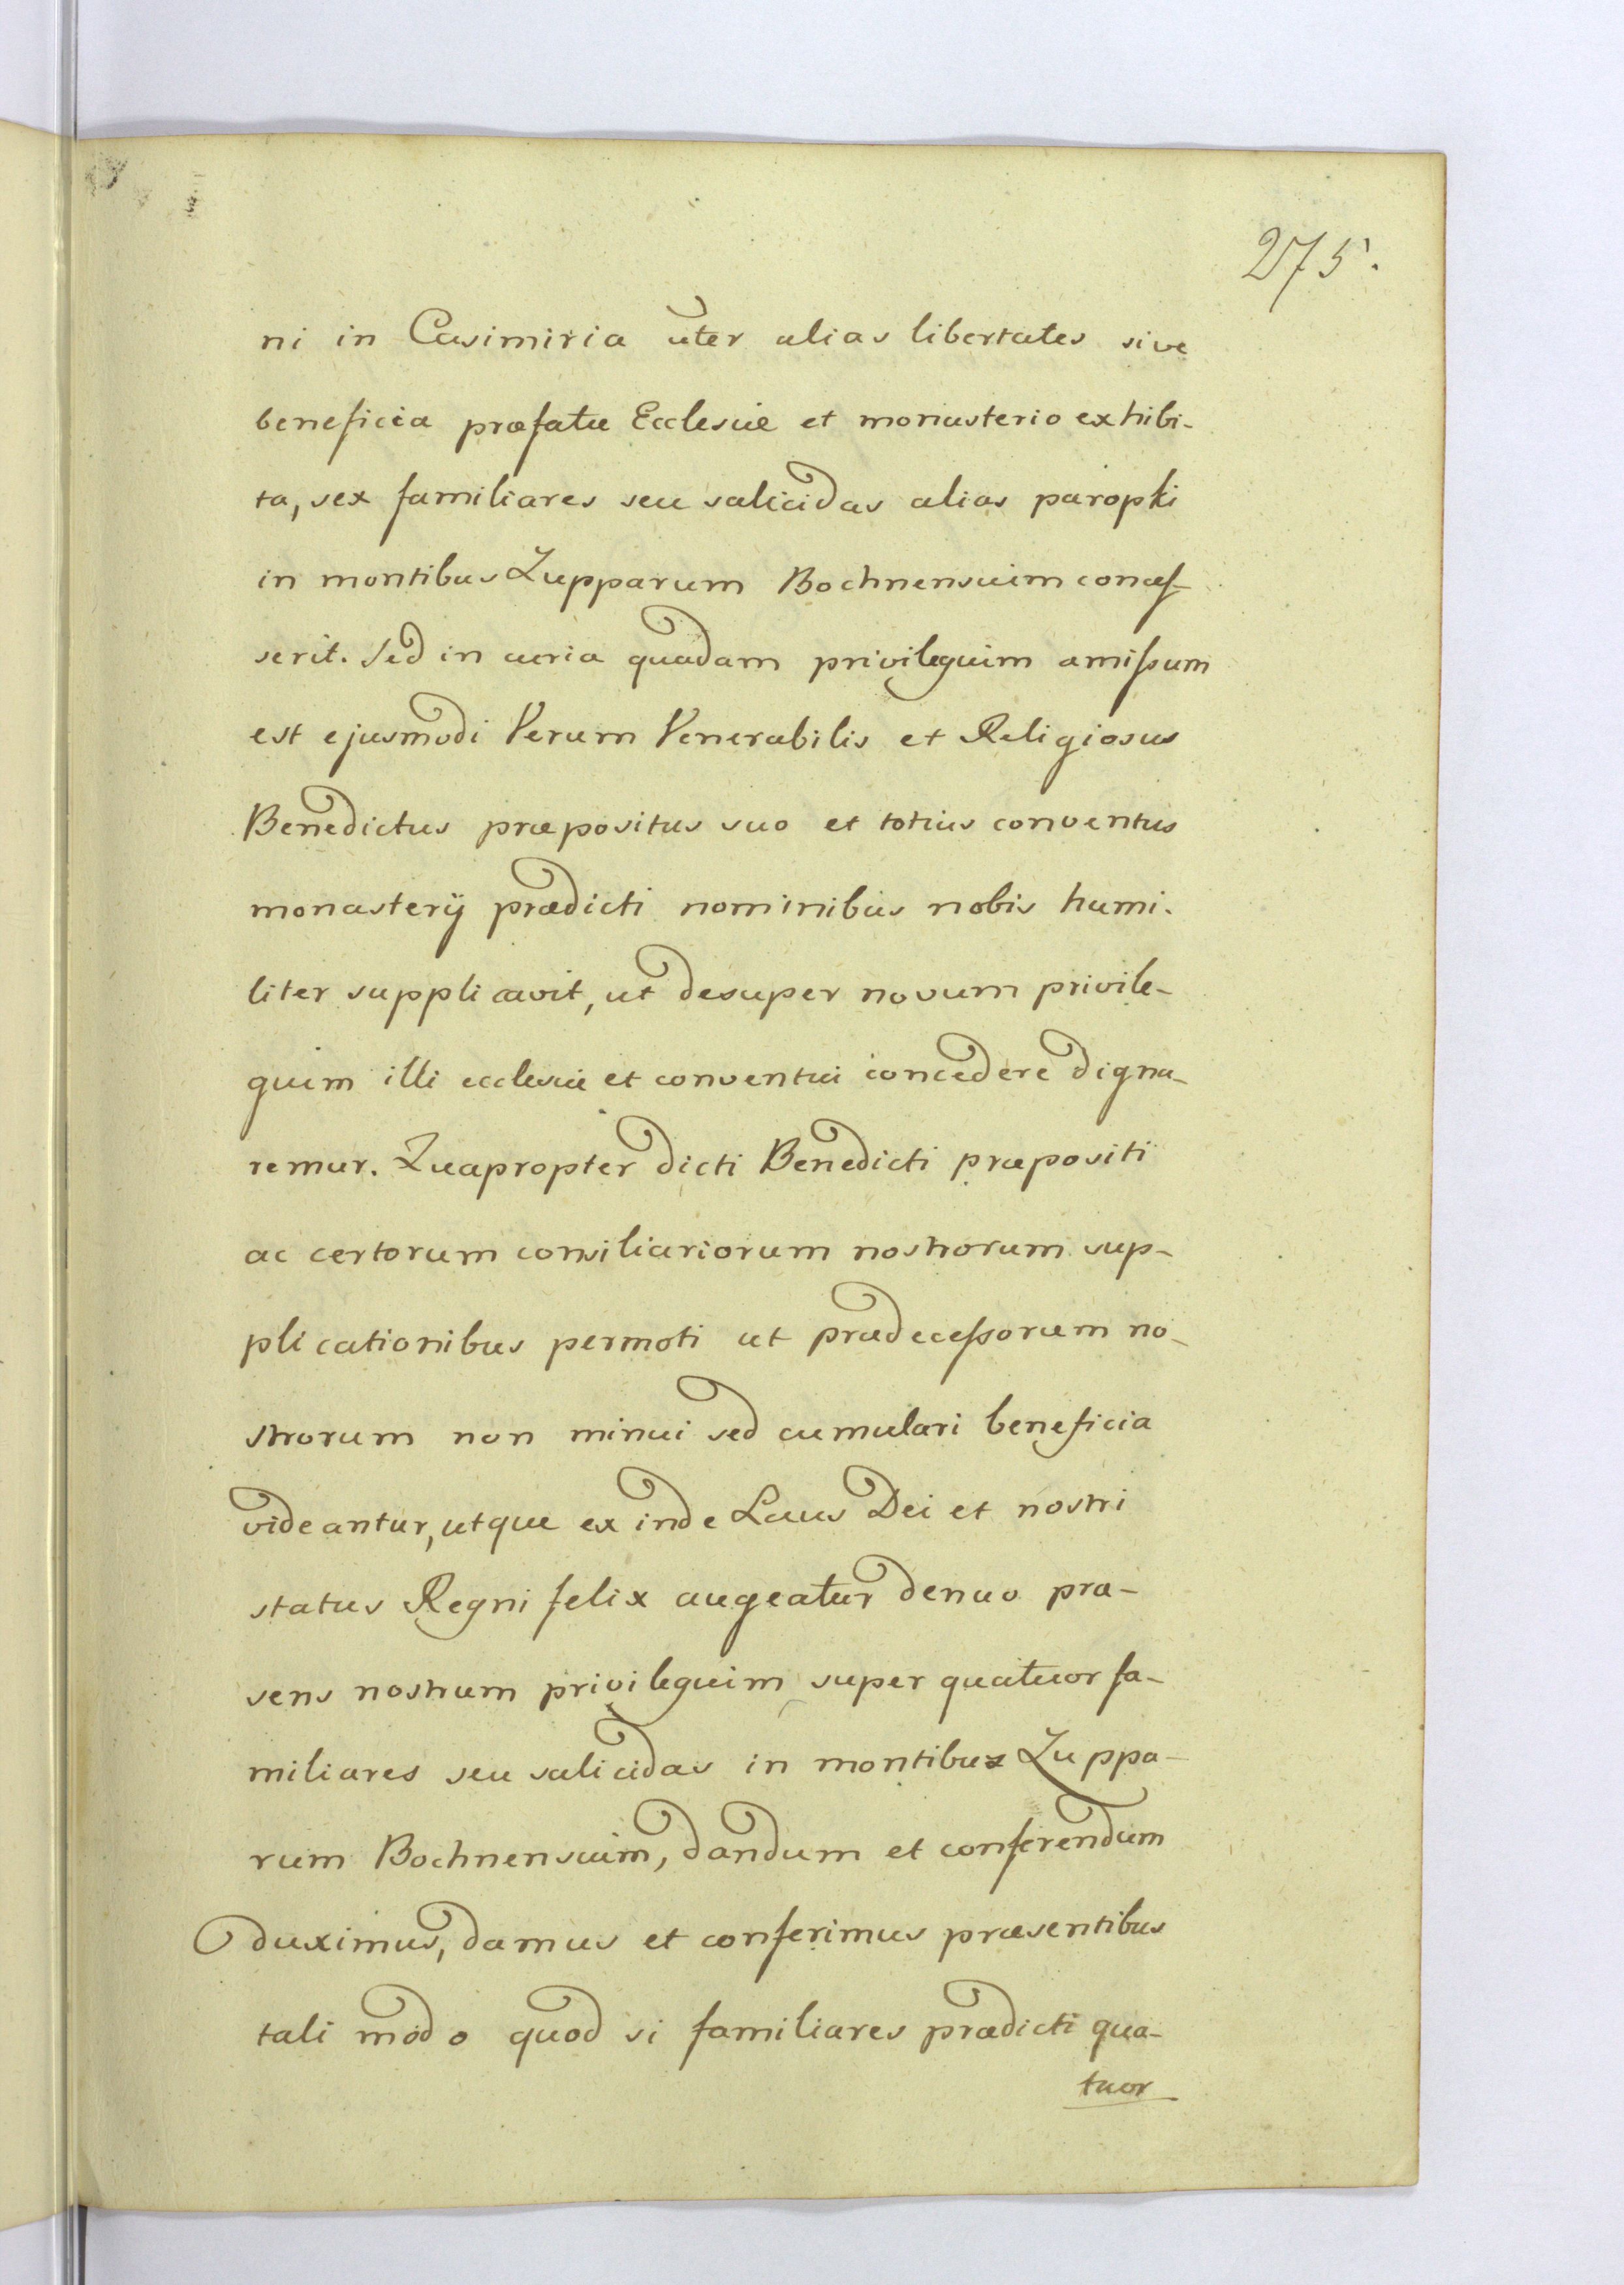 275.
ni in Casimiria uter alias libertates sive
beneficia præfatæ Ecclesiæ et monasterio exhibi-
ta, sex familiares seu salicidas alias paropki
in montibus Zupparum Bochnensium conces-
serit. Sed in curia quadam privilegium amissum
est ejusmodi Verum Venerabilis et Religiosus
Benedictus præpositus suo et totius conventus
monasterij prædicti nominibus nobis humi-
liter supplicavit, ut desuper novum privile-
gium illi ecclesiæ et conventui concedere digna-
remur. Quapropter dicti Benedicti præpositi
ac certorum consiliariorum nostrorum sup-
plicationibus permoti ut prædecessorum no-
strorum non minui sed cumulari beneficia
videantur, utque ex inde Laus Dei et nostri
status Regni felix augeatur denuo præ-
sens nostrum privilegium super quatuor fa-
miliares seu salicidas in montibus Zuppa-
rum Bochnensium, dandum et conferendum
duximus, damus et conferimus præsentibus
tali modo quod si familiares prædicti qua-
tuor